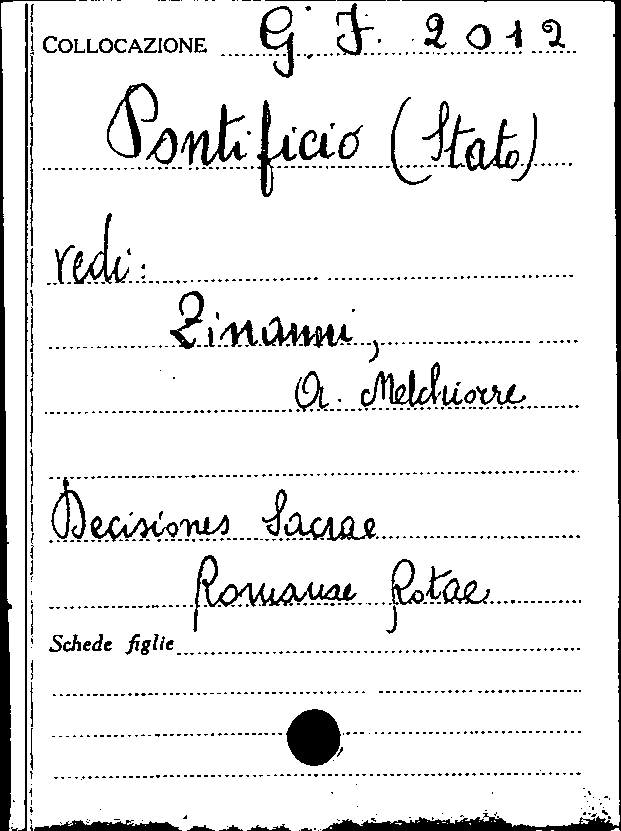 COLLOCAZIONE G. J. 2012
Pontificio (Stato)
vedi:
Zinanni,
A. Melchiorre
Decisiones Sacrae
Romanae Rotae
Schede figlie